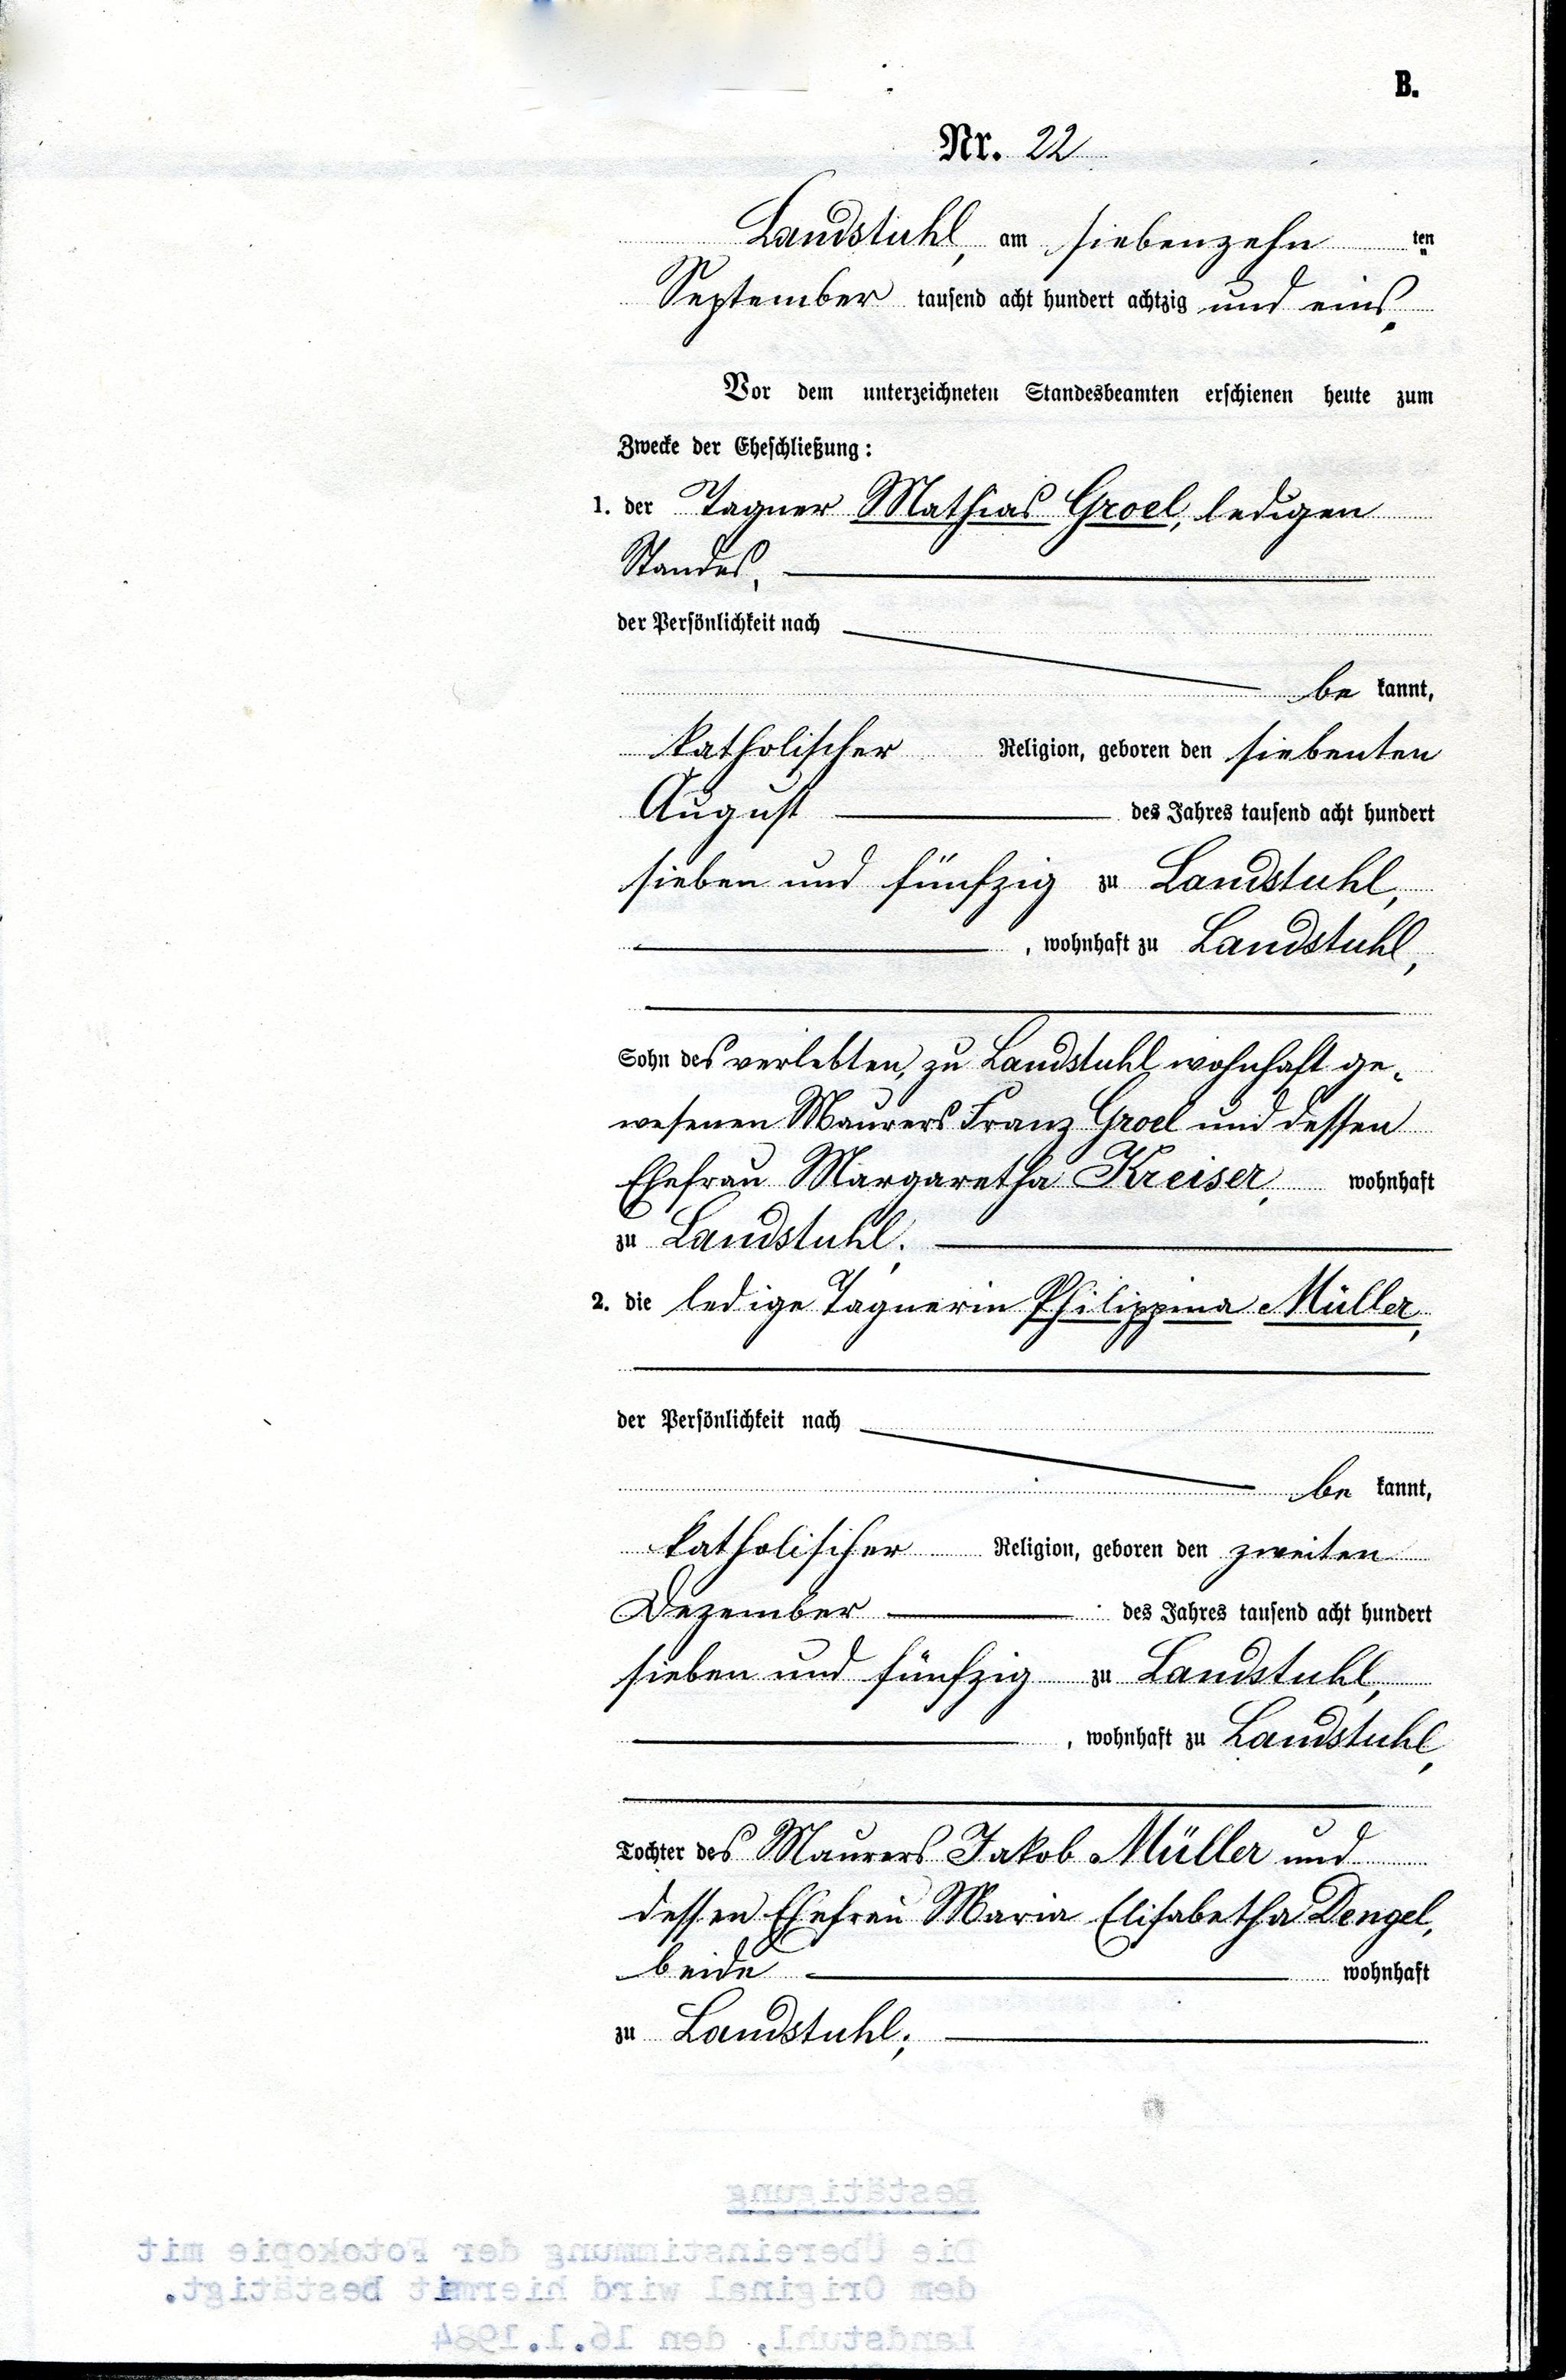 B.
Nr. 22
Landstuhl, am siebenzehn ten
September tausend acht hundert achtzig und eins.
Vor dem unterzeichneten Standesbeamten erschienen heute zum
Zwecke der Eheschließung:
1. der Tagner Mathias Groel, ledigen
Standes,
der Persönlichkeit nach
be kannt,
katholischer Religion, geboren den siebenten
August des Jahres tausend acht hundert
sieben und fünfzig zu Landstuhl,
, wohnhaft zu Landstuhl,
Sohn des verlebten, zu Landstuhl wohnhaft ge-
wesenen Maurers Franz Groel und dessen
Ehefrau Margaretha Kreiser, wohnhaft
zu Landstuhl;
2. die ledige Tagnerin Philippina Müller,
der Persönlichkeit nach
be kannt,
katholischer Religion, geboren den zweiten
Dezember des Jahres tausend acht hundert
sieben und fünfzig zu Landstuhl,
, wohnhaft zu Landstuhl,
Tochter des Maurers Jakob Müller und
dessen Ehefrau Maria Elisabetha Dengel,
beide wohnhaft
zu Landstuhl;
Bestätigung
Die Übereinstimmung der Fotokopie mit
dem Original wird hiermit bestätigt.
Landstuhl, den 16.1.1984